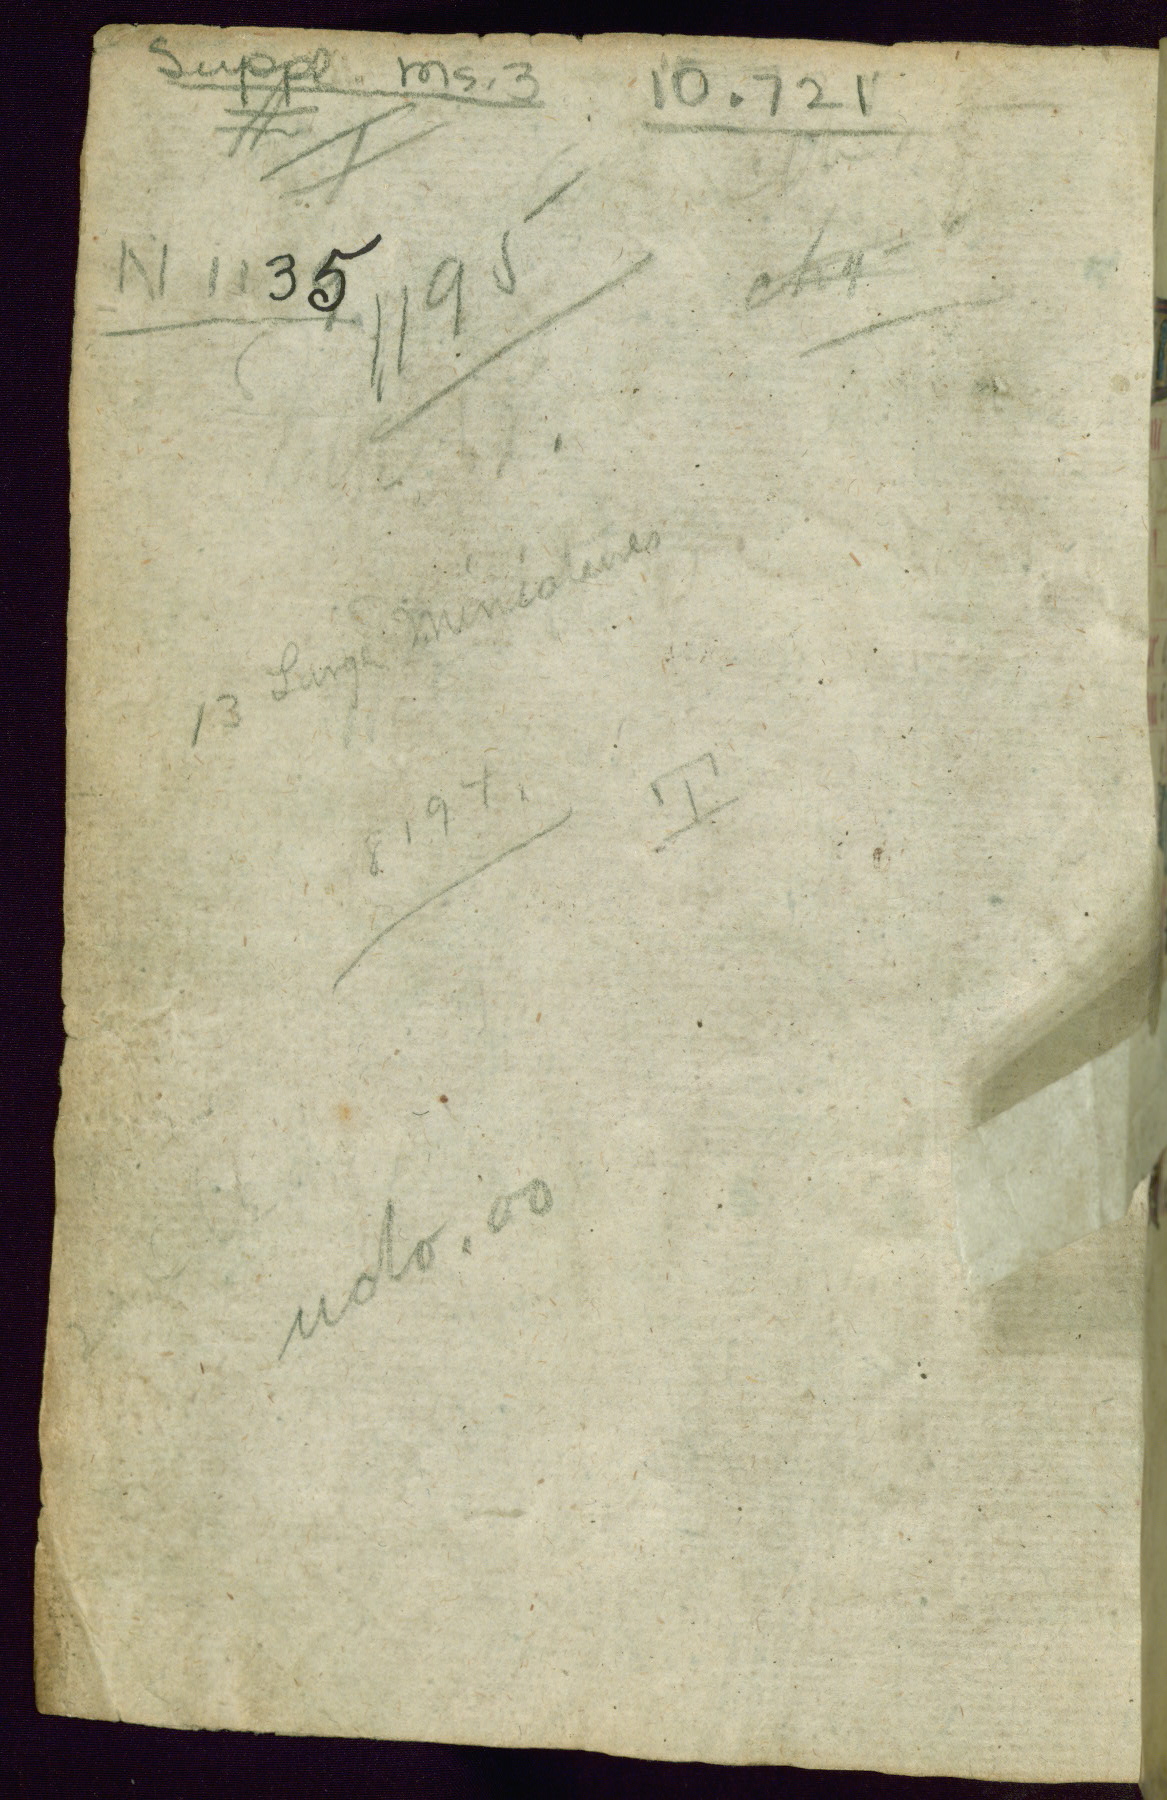 Suppl. ms. 3 10.721
N 1135
1195
13 Large Miniatures
8197. T
udo.oo